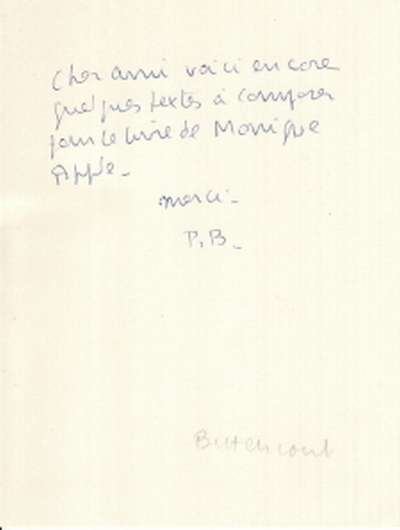 Cher ami voici encore
quelques textes à composer
pour le livre de Monique
Apple_
merci_
P.B_
Bettencourt